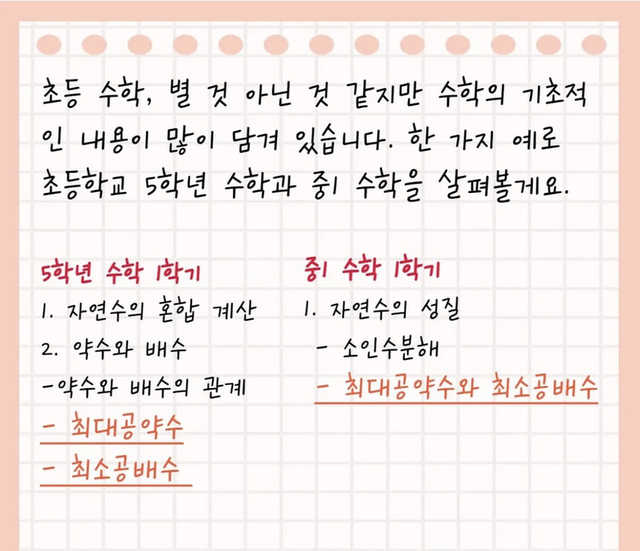 초등 수학, 별 것 아닌 것 같지만 수학의 기초적
인 내용이 많이 담겨 있습니다. 한 가지 예로
초등학교 5학년 수학과 중1 수학을 살펴볼게요.
5학년 수학 1학기
1. 자연수의 혼합 계산
2. 약수와 배수
-약수와 배수의 관계
- 최대공약수
- 최소공배수
중1 수학 1학기
1. 자연수의 성질
- 소인수분해
- 최대공약수와 최소공배수